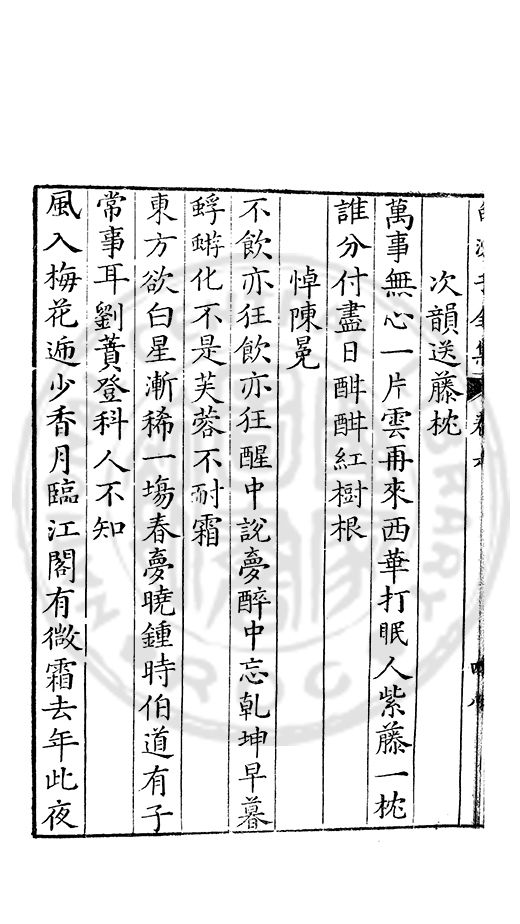 次韻送藤枕
萬事無心一片雲再來西華打眠人紫藤一枕
誰分付盡日酣酣紅樹根
悼陳冕
不飲亦狂飲亦狂醒中說夢醉中忘乾坤早暮
蜉蝣化不是芙蓉不耐霜
東方欲白星漸稀一塲春夢曉鍾時伯道有子
常事耳劉蕡登科人不知
風入梅花逓少香月臨江閣有微霜去年此夜